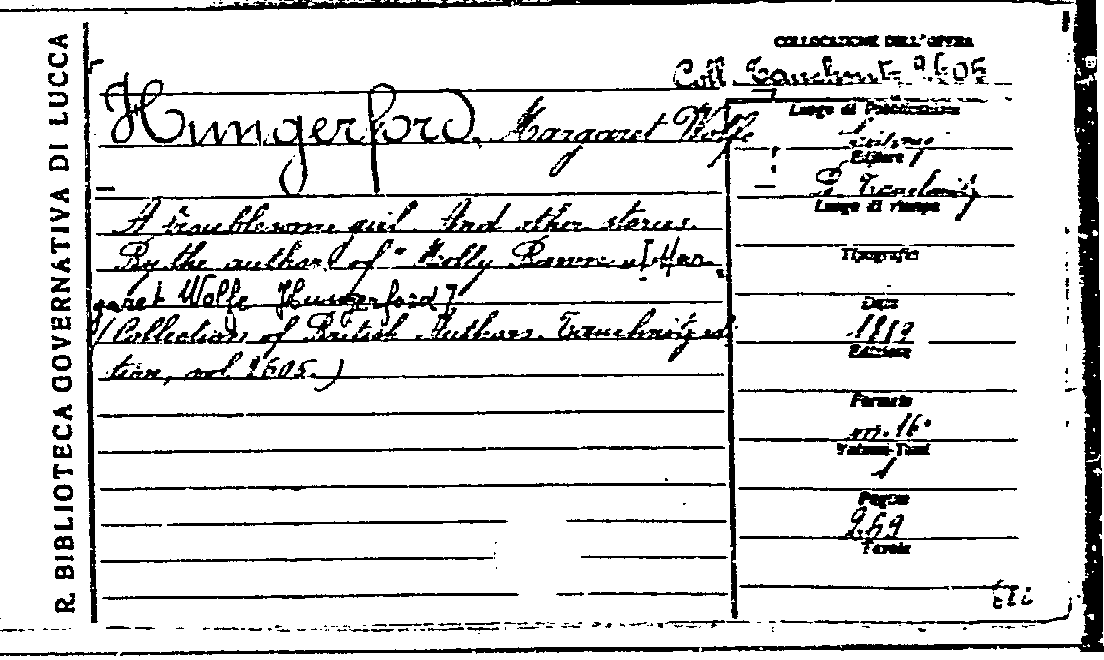 R. BIBLIOTECA GOVERNATIVA DI LUCCA
COLLOCAZIONE DELL'OPERA
Coll. Tauchnitz 2605
Hungerford, Margaret Wolfe
A troublesome girl. And other stories.
By the author of "Molly Bawn" [Mar-
garet Wolfe Hungerford]
(Collection of British Authors Tauchnitz edi-
tion, vol 2605.)
Luogo di Pubblicazione
Leipzig
Editore
B. Tauchnitz
Luogo di stampa
Tipografo
Data
1889
Edizione
Formato
in. 16°
Volume-Tomi
1
Pagine
269
Tavole